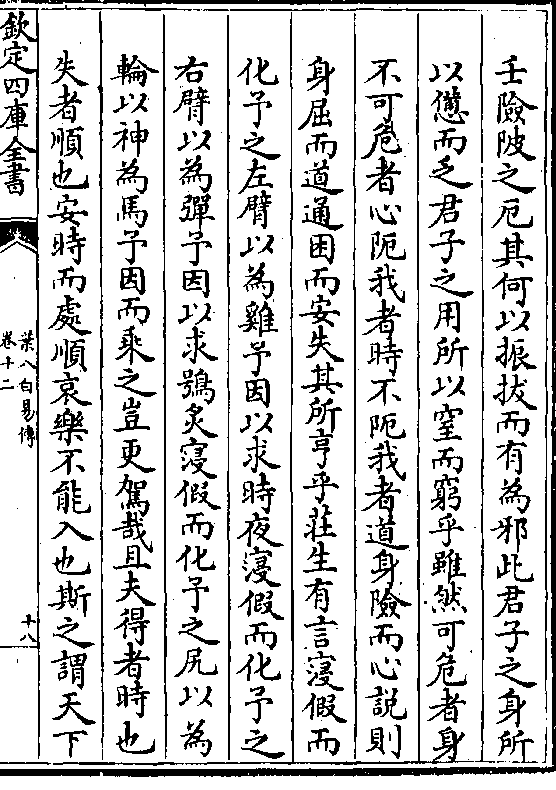 壬險陂之厄其何以振拔而有為邪此君子之身所
以儊而乏君子之用所以窒而窮乎雖然可危者身
不可危者心阨我者時不阨我者道身險而心說則
身屈而道通困而安失其所亨乎莊生有言寖假而
化予之左臂以為雞予因以求時夜寖假而化予之
右臂以為彈予因以求鴞炙寖假而化予之尻以為
輪以神為馬予因而乘之豈更駕哉且夫得者時也
失者順也安時而處順哀樂不能入也斯之謂天下
欽定四庫全書
葉八白易傳
卷十二
十八